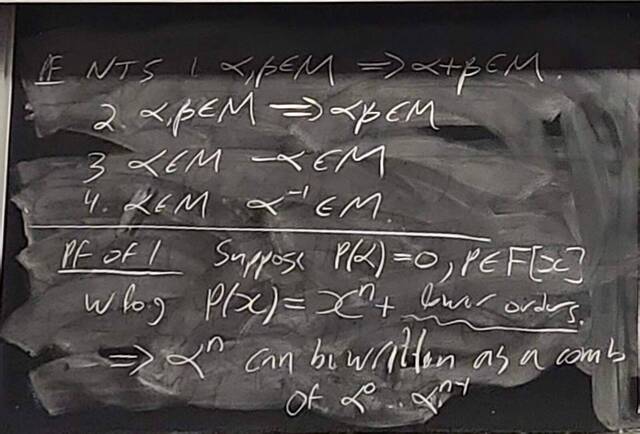 PF NTS 1. α,β∈M ⟹ α+β∈M.
2. α,β∈M ⟹ αβ∈M
3 α∈M -α∈M
4. α∈M α⁻¹∈M.
PF OF 1 Suppose P(α)=0, P∈F[x]
wlog P(x)=xⁿ+ lower orders.
⟹ αⁿ can be written as a comb
of α⁰...αⁿ⁻¹